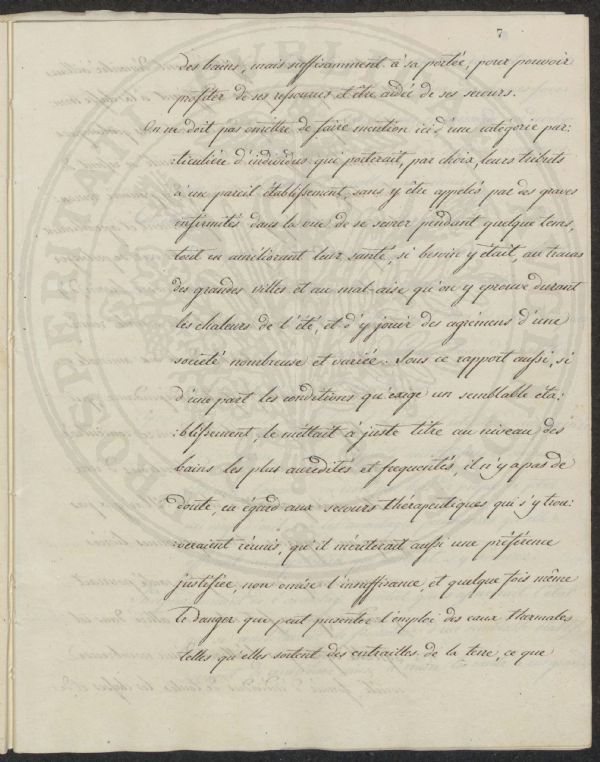 7
des bains, mais suffisamment à sa portée, pour pouvoir
profiter de ses ressources et être aidée de ses secours.
On ne doit pas omettre de faire mention ici d'une catégorie par:
:ticulière d'individus qui porterait, par choix, leurs tributs
à un pareil établissement, sans y être appelés par des graves
infirmités dans la vue de se sevrer pendant quelque tems,
tout en améliorant leur santé, si besoin y était, au tracas
des grandes villes et au mal-aise qu'on y eprouve durant
les chaleurs de l'été, et d'y jouir des agrémens d'une
société nombreuse et variée. Sous ce rapport aussi, si
d'une part les conditions qu'exige un semblable éta:
:blissement, le mettait à juste titre au niveau des
bains les plus accrédités et frequentés, il n'y a pas de
doute, eu égard aux secours thérapeutiques qui s'y trou:
:veraient réunis, qu'il mériterait aussi une préférence
justifiée, non omise l'insuffisance, et quelque fois même
le danger que peut presenter l'emploi des eaux thermales
telles qu'elles sortent des entrailles de la terre, ce que